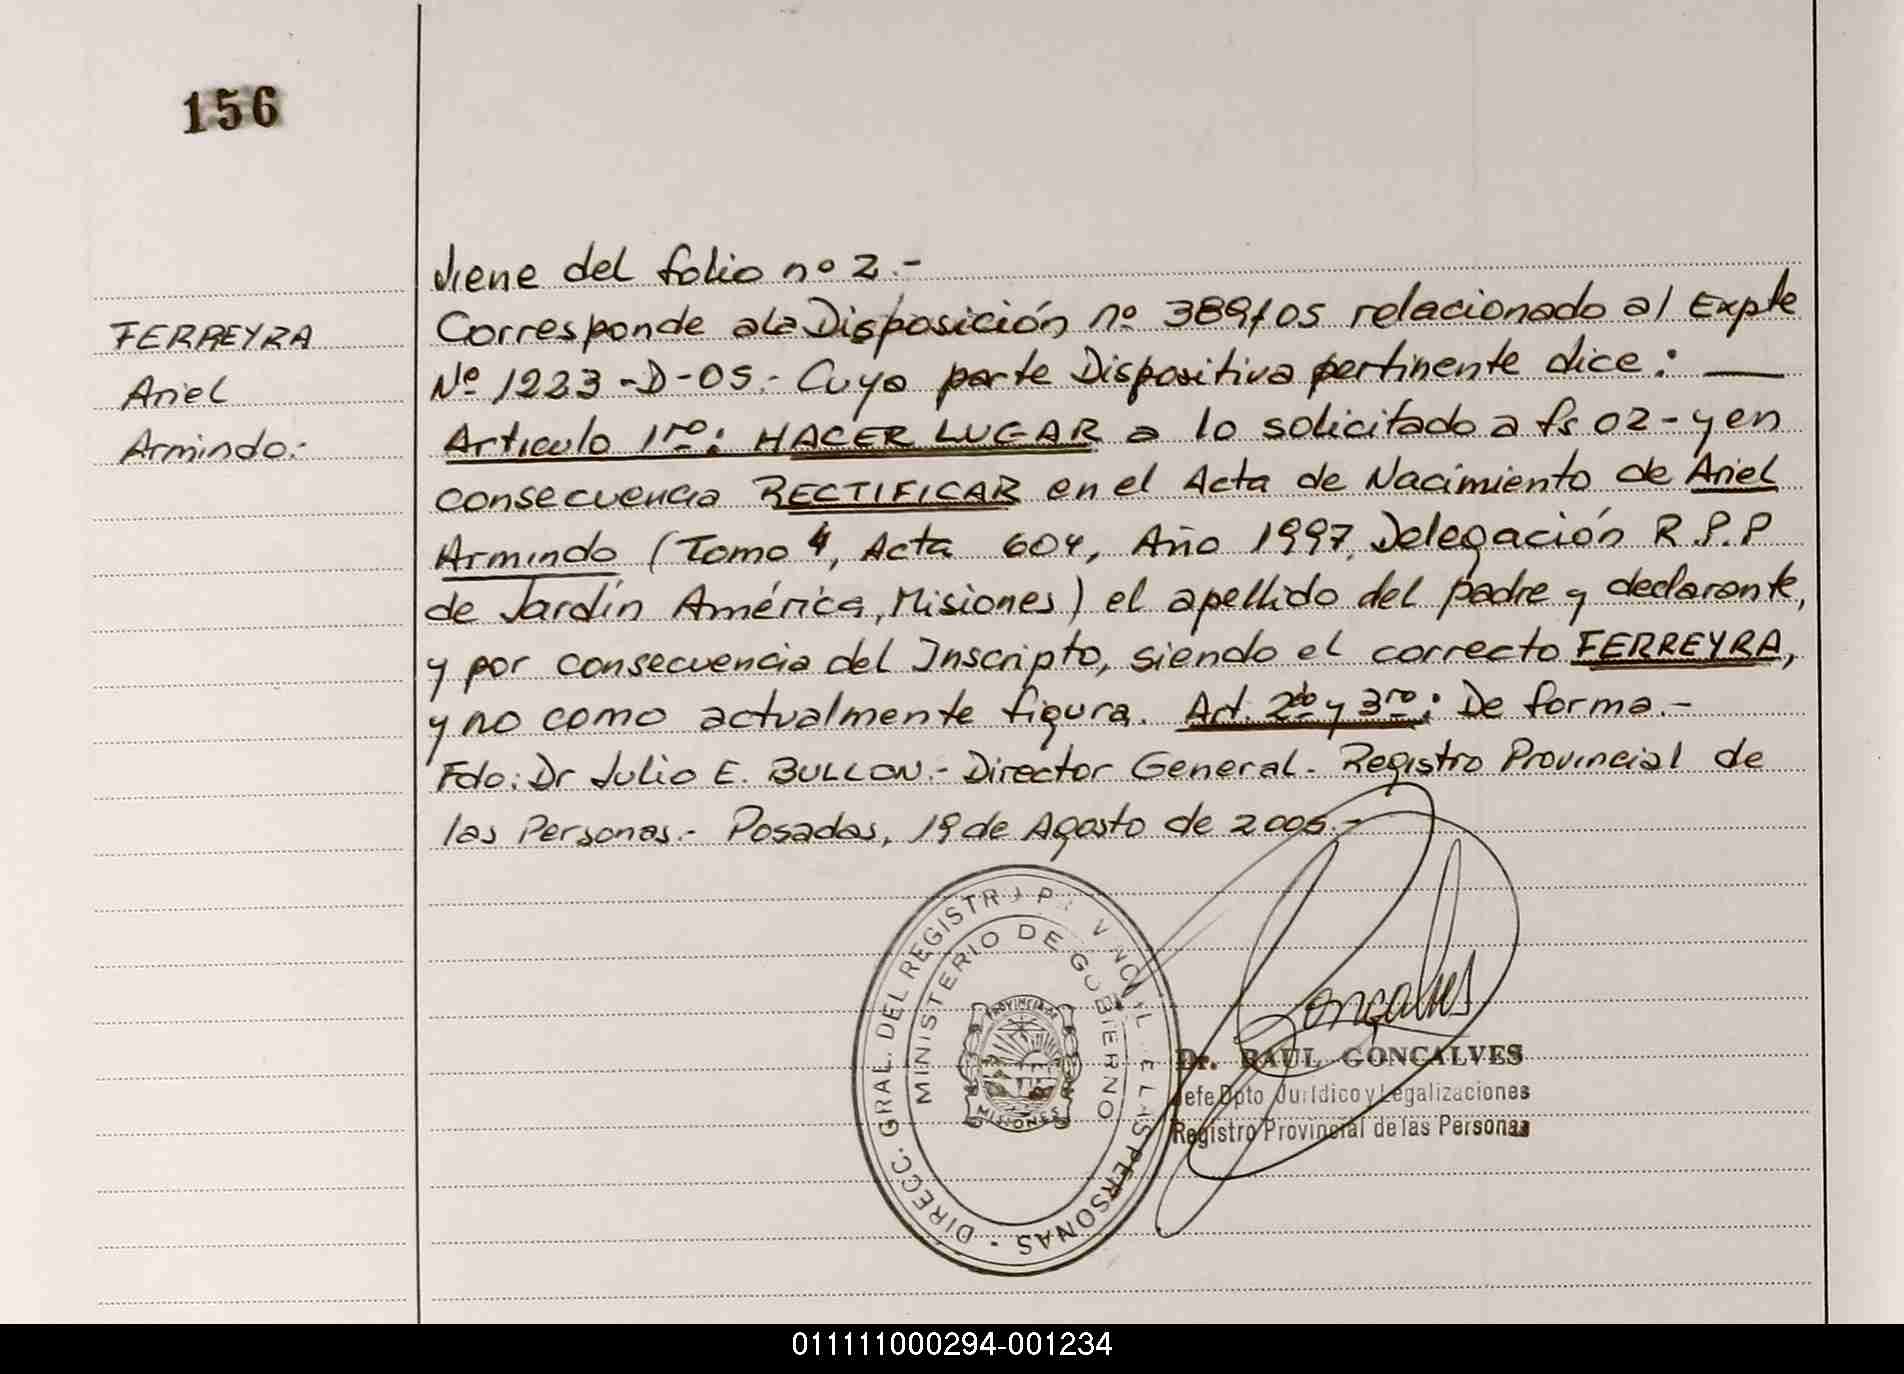 156
Viene del folio nº 2.-
FERREYRA
Ariel
Armindo.-
Corresponde a la Disposición nº 389/05 relacionado al Expte
Nº 1223-D-05.- Cuya parte Dispositiva pertinente dice: ___
Articulo 1ro: HACER LUGAR a lo solicitado a fs 02- y en
consecuencia RECTIFICAR en el Acta de Nacimiento de Ariel
Armindo (Tomo 4, Acta 604, Año 1997, Delegación R.P.P
de Jardín América, Misiones) el apellido del padre y declarante,
y por consecuencia del Inscripto, siendo el correcto FERREYRA,
y no como actualmente figura. Art. 2do y 3ro: De forma.-
Fdo: Dr Julio E. BULLON.- Director General- Registro Provincial de
las Personas.- Posadas, 19 de Agosto de 2005.-
DIRECC. GRAL. DEL REGISTRO PROVINCIAL DE LAS PERSONAS -
MINISTERIO DE GOBIERNO
PROVINCIA DE
MISIONES
Goncalves
Dr. RAUL GONCALVES
Jefe Dpto Jurídico y Legalizaciones
Registro Provincial de las Personas
011111000294-001234